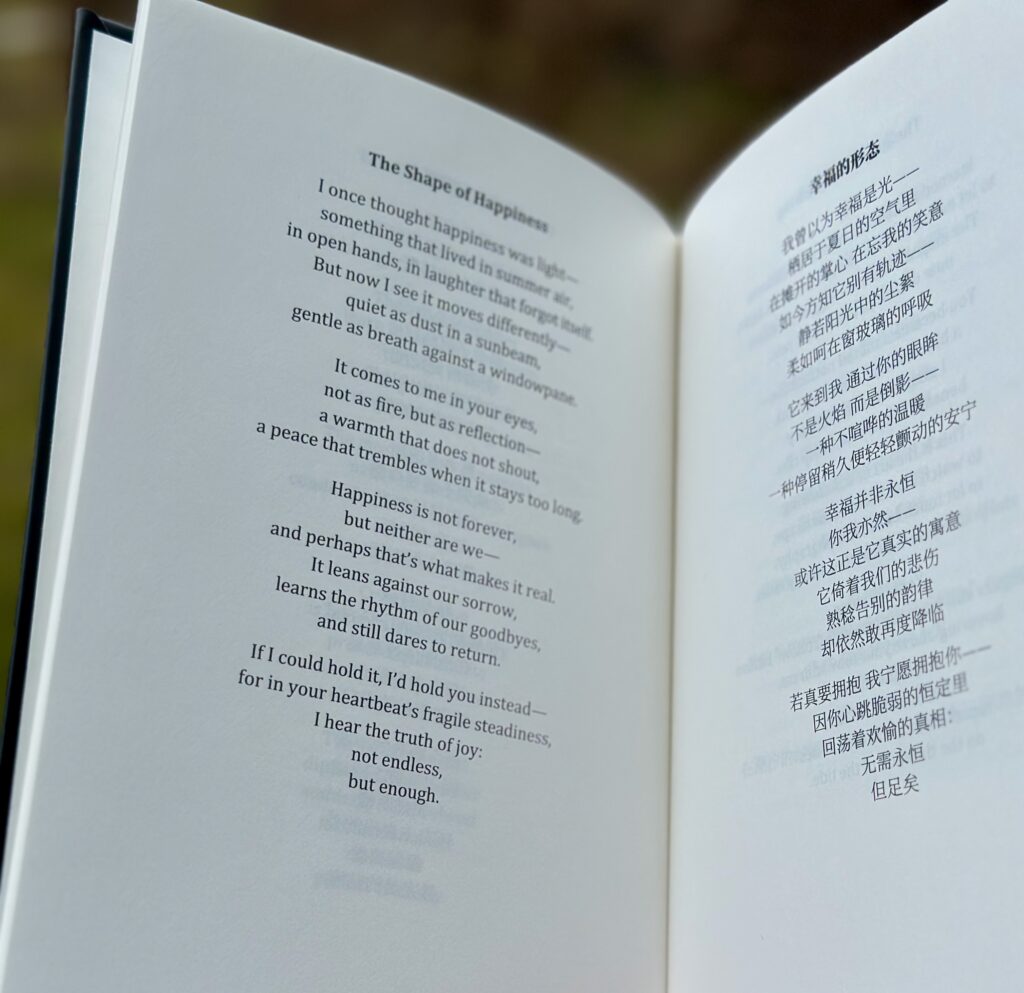 The Shape of Happiness
I once thought happiness was light—
something that lived in summer air,
in open hands, in laughter that forgot itself.
But now I see it moves differently—
quiet as dust in a sunbeam,
gentle as breath against a windowpane.
It comes to me in your eyes,
not as fire, but as reflection—
a warmth that does not shout,
a peace that trembles when it stays too long.
Happiness is not forever,
but neither are we—
and perhaps that's what makes it real.
It leans against our sorrow,
learns the rhythm of our goodbyes,
and still dares to return.
If I could hold it, I'd hold you instead—
for in your heartbeat's fragile steadiness,
I hear the truth of joy:
not endless,
but enough.
幸福的形态
我曾以为幸福是光——
栖居于夏日的空气里
在摊开的掌心 在忘我的笑意
如今方知它别有轨迹——
静若阳光中的尘絮
柔如呵在窗玻璃的呼吸
它来到我 通过你的眼眸
不是火焰 而是倒影——
一种不喧哗的温暖
一种停留稍久便轻轻颤动的安宁
幸福并非永恒
你我亦然——
或许这正是它真实的寓意
它倚着我们的悲伤
熟稔告别的韵律
却依然敢再度降临
若真要拥抱 我宁愿拥抱你——
因你心跳脆弱的恒定里
回荡着欢愉的真相：
无需永恒
但足矣